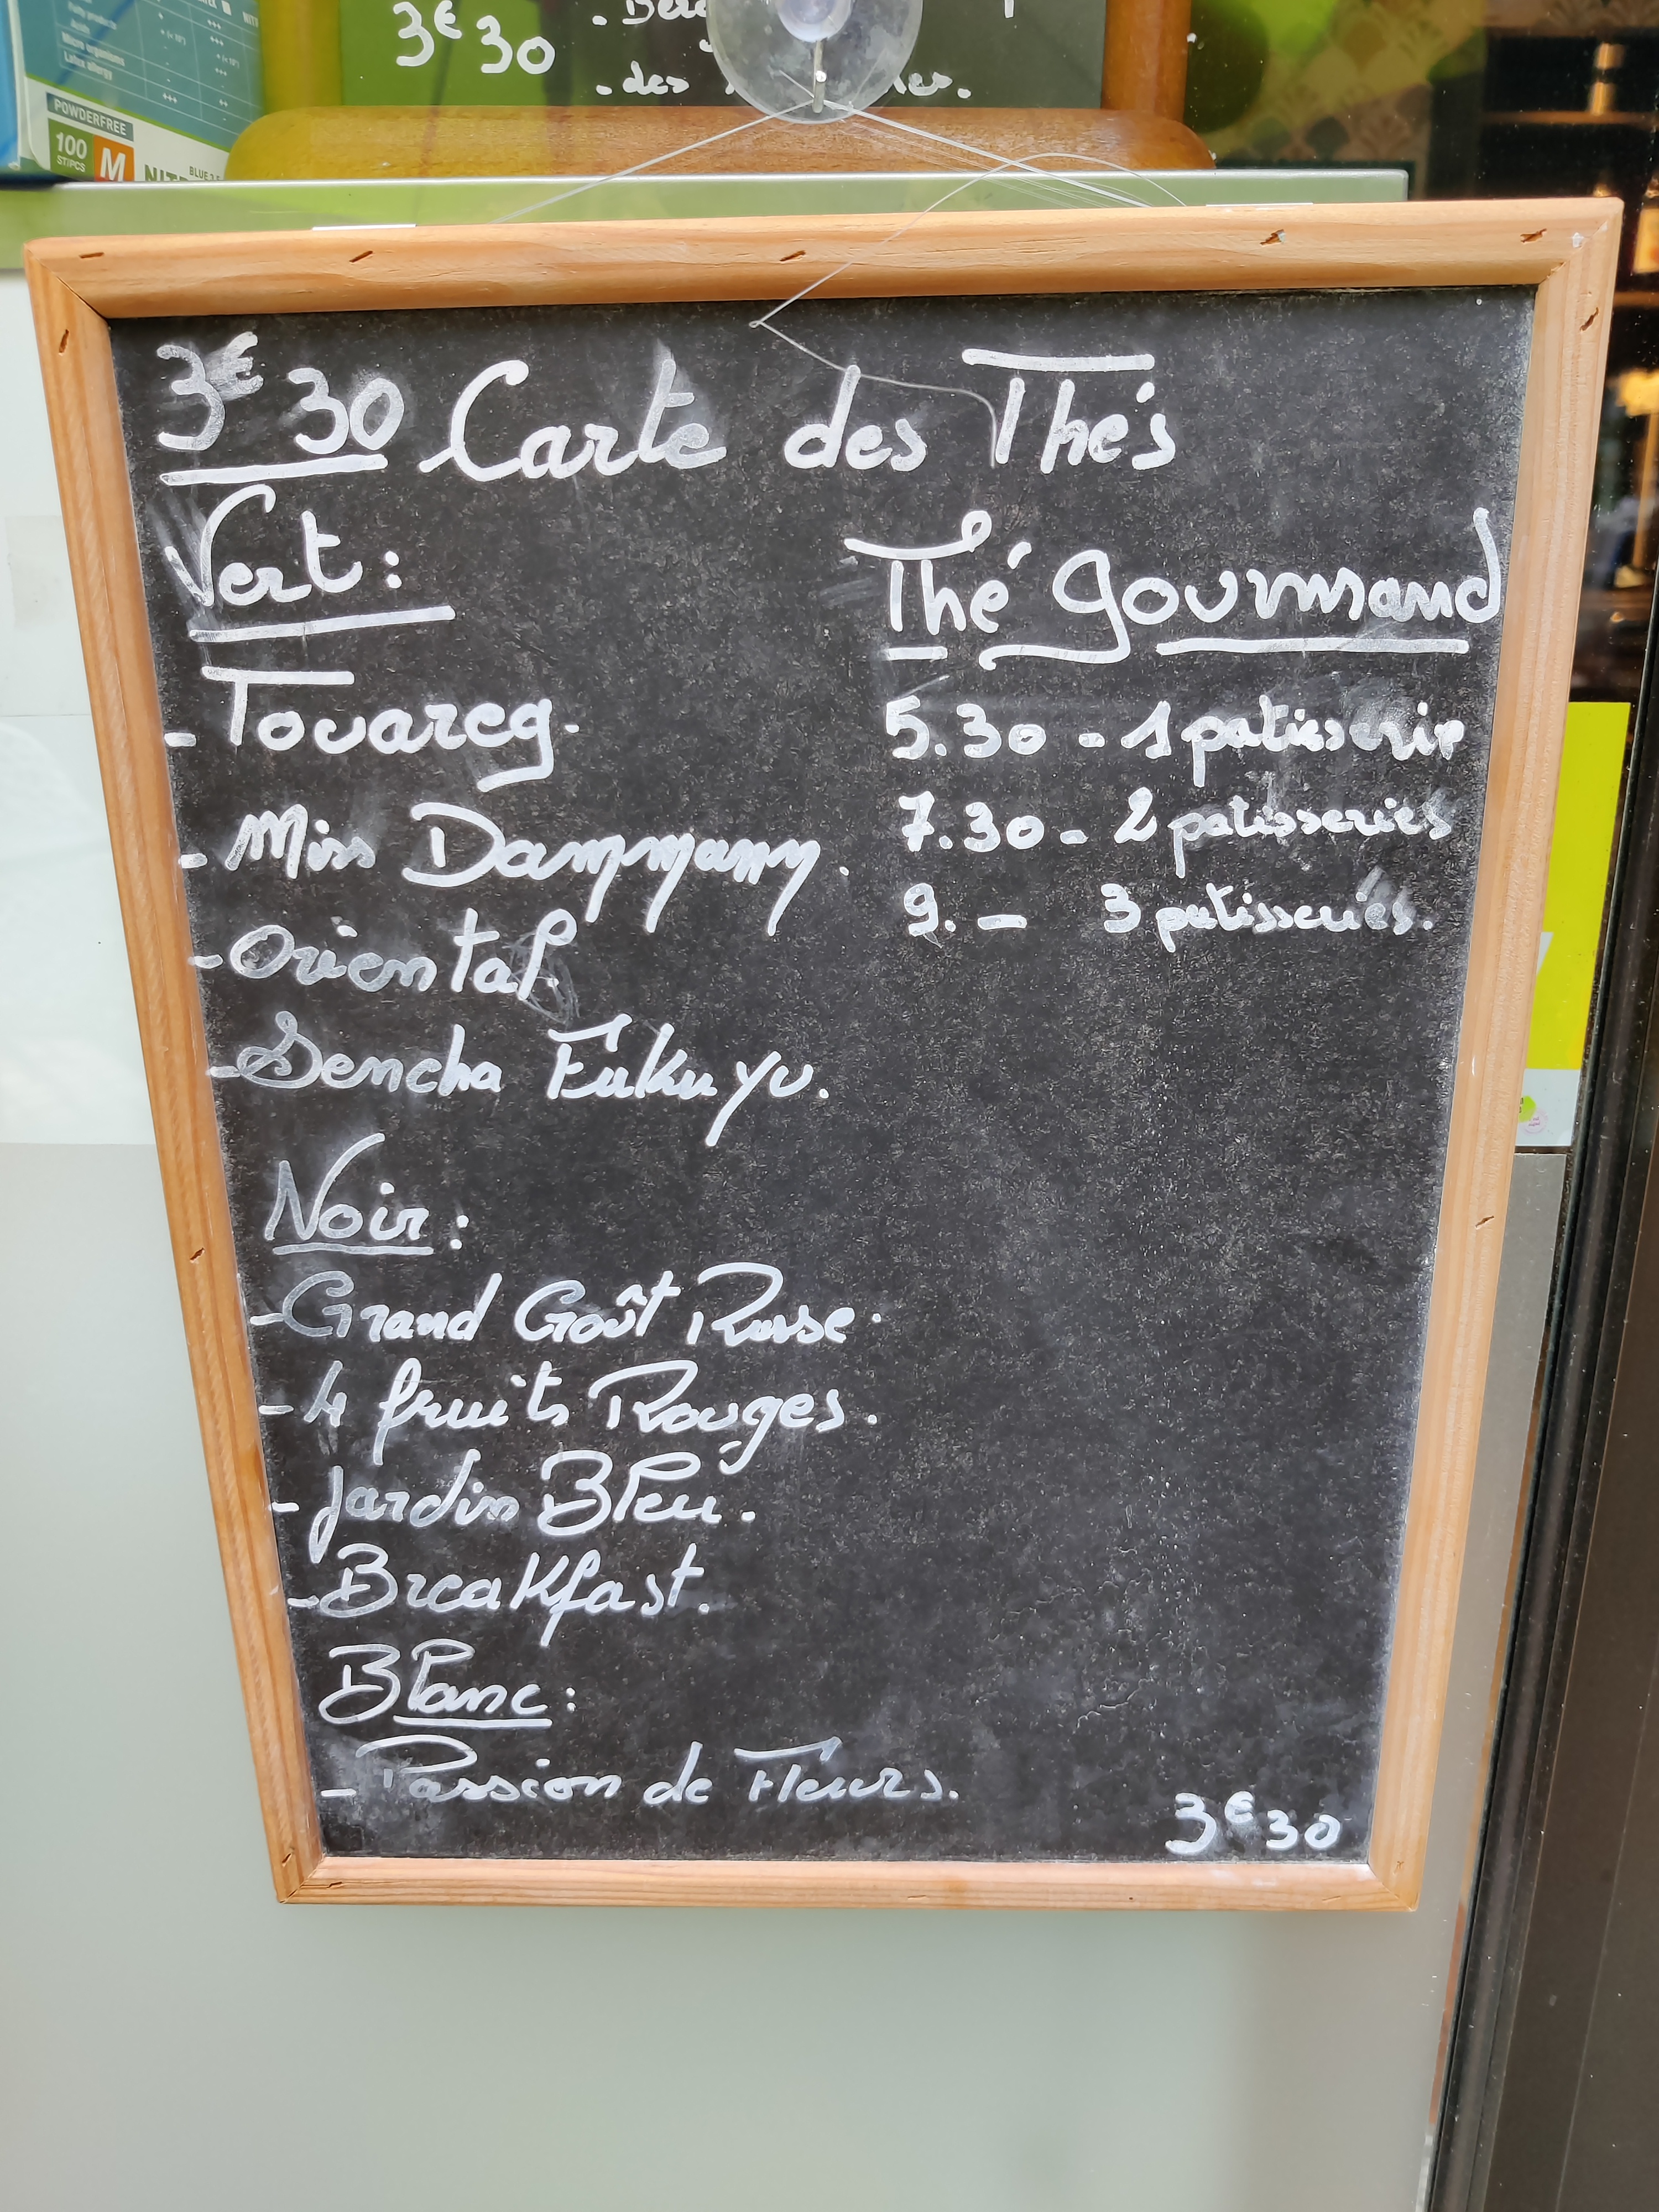 3€30
- des
POWDERFREE
100
ST/PCS
M
3€30 Carte des Thés
Vert:
- Touareg.
- Miss Dammann.
- Oriental.
- Sencha Fukuyu.
Noir:
- Grand Goût Russe.
- 4 fruits Rouges.
- Jardin Bleu.
- Breakfast.
Blanc:
- Passion de Fleurs.
Thé gourmand
5.30 - 1 patisserie
7.30 - 2 patisseries
9. - 3 patisseries.
3€30